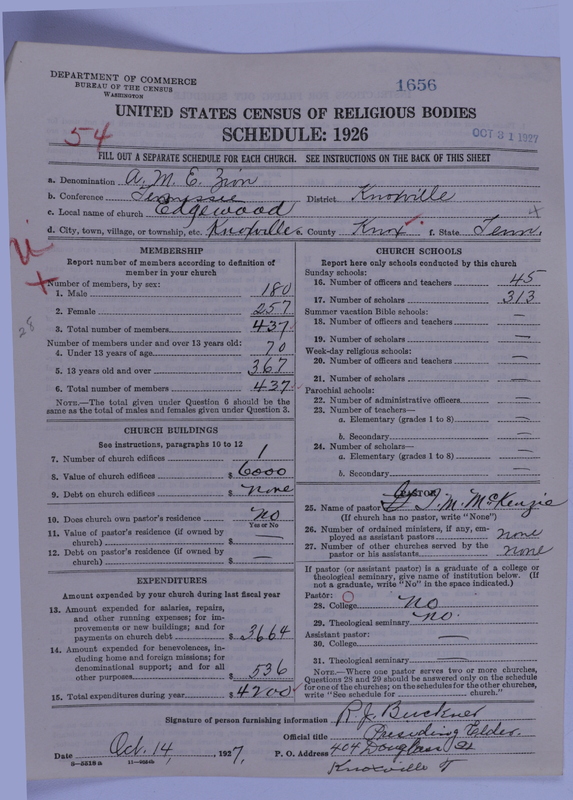 DEPARTMENT OF COMMERCE
BUREAU OF THE CENSUS
WASHINGTON
1656
UNITED STATES CENSUS OF RELIGIOUS BODIES
54
SCHEDULE: 1926
OCT 31 1927
FILL OUT A SEPARATE SCHEDULE FOR EACH CHURCH. SEE INSTRUCTIONS ON THE BACK OF THIS SHEET
a. Denomination A. M. E. Zion
b. Conference Tennyssie District Knoxville
c. Local name of church Edgewood
d. City, town, village, or township, etc. Knoxville e. County Knox f. State Tenn.
MEMBERSHIP
Report number of members according to definition of member in your church
Number of members, by sex:
1. Male 180
2. Female 257
3. Total number of members 437
28
Number of members under and over 13 years old:
4. Under 13 years of age 70
5. 13 years old and over 367
6. Total number of members 437
NOTE.—The total given under Question 6 should be the
same as the total of males and females given under Question 3.
CHURCH BUILDINGS
See instructions, paragraphs 10 to 12
7. Number of church edifices 1
8. Value of church edifices $ 6000
9. Debt on church edifices $ none
10. Does church own pastor's residence No
Yes or No
11. Value of pastor's residence (if owned by
church) $ —
12. Debt on pastor's residence (if owned by
church) $ —
EXPENDITURES
Amount expended by your church during last fiscal year
13. Amount expended for salaries, repairs,
and other running expenses; for im-
provements or new buildings; and for
payments on church debt $ 3664
14. Amount expended for benevolences, in-
cluding home and foreign missions; for
denominational support; and for all
other purposes $ 536
15. Total expenditures during year $ 4200
CHURCH SCHOOLS
Report here only schools conducted by this church
Sunday schools:
16. Number of officers and teachers 45
17. Number of scholars 313
Summer vacation Bible schools:
18. Number of officers and teachers —
19. Number of scholars —
Week-day religious schools:
20. Number of officers and teachers —
21. Number of scholars —
Parochial schools:
22. Number of administrative officers —
23. Number of teachers—
a. Elementary (grades 1 to 8) —
b. Secondary —
24. Number of scholars—
a. Elementary (grades 1 to 8) —
b. Secondary —
PASTOR
25. Name of pastor M. McKenzie
(If church has no pastor, write "None")
26. Number of ordained ministers, if any, em-
ployed as assistant pastors none
27. Number of other churches served by the
pastor or his assistants none
If pastor (or assistant pastor) is a graduate of a college or
theological seminary, give name of institution below. (If
not a graduate, write "No" in the space indicated.)
Pastor:
28. College No
29. Theological seminary no.
Assistant pastor:
30. College —
31. Theological seminary —
NOTE.—Where one pastor serves two or more churches,
Questions 28 and 29 should be answered only on the schedule
for one of the churches; on the schedules for the other churches,
write "See schedule for church."
Signature of person furnishing information R. J. Buckner
Official title Presiding Elder.
Date Oct. 14, 1927, P. O. Address 404 Douglass St
Knoxville T
8—5518 a